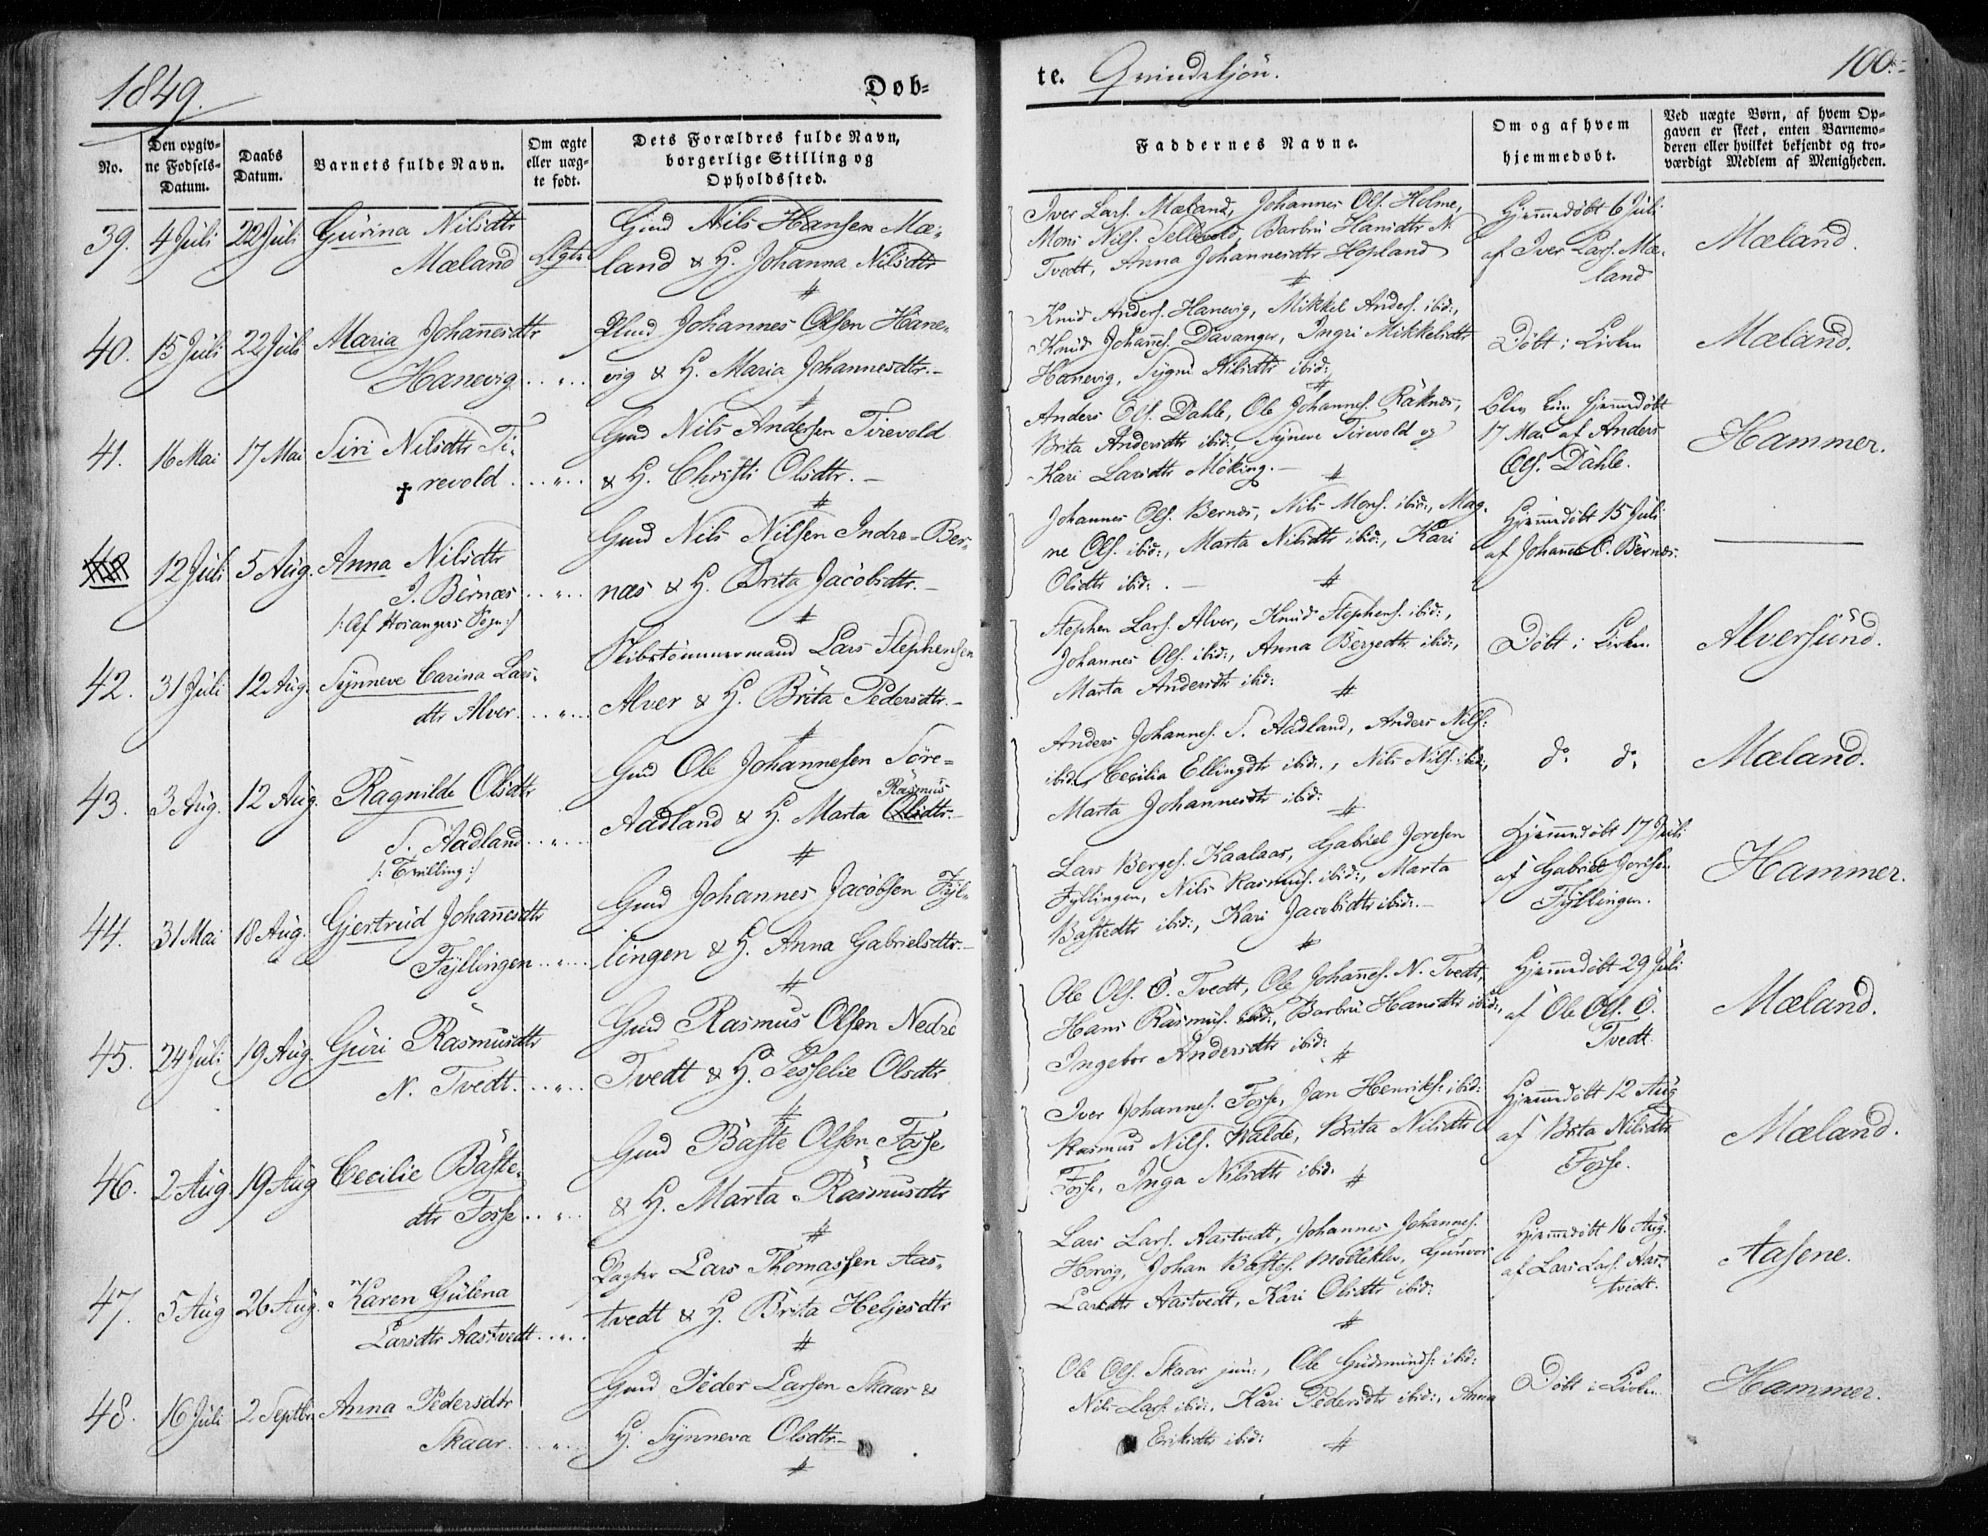 1849.
Døb-
te. Qvindekjön.
100.
No.
Den opgiv-
ne Fødsels-
Datum.
Daabs
Datum.
Barnets fulde Navn.
Om ægte
eller uæg-
te født.
Dets Forældres fulde Navn,
borgerlige Stilling og
Opholdssted.
Faddernes Navne.
Om og af hvem
hjemmedøbt.
Ved uægte Børn, af hvem Op-
gaven er skeet, enten Barnemo-
deren eller hvilket bekjendt og tro-
værdigt Medlem af Menigheden.
39. 4 Juli 22 Juli Gurina Nilsdtr
Mæland Ægte
Gmd Nils Hansen Mæ-
land & H. Johanna Nilsdtr
Iver Lars. Mæland, Johannes Ols. Holme,
Mons Nils. Tellevold, Barbru Hansdtr N.
Tvedt, Anna Johannesdtr Hopland
Hjemmedöbt 6 Juli
af Iver Lars. Mæ-
land
Mæland.
40. 15 Juli 22 Juli Maria Johannesdtr
Hanevig
Johannes Olsen Hane-
vig & H. Maria Johannesdtr.-
Knud Anders. Hanevig, Mikkel Anders. ibid:,
Knud Johannes. Davanger, Ingri Mikkelsdtr
Hanevig, Sygni Nilsdtr ibid:
Döbt i Kirken
Mæland.
41. 16 Mai 17 Mai Siri Nilsdtr Ti-
revold
Gmd Nils Andersen Tirevold
& H. Christi Olsdtr.-
Anders Ols. Dahle, Ole Johannes. Räknes,
Brita Andersdtr ibid:, Synneve Tirevold og
Kari Larsdtr Möking.-
Blev kun hjemmedöbt
17 Mai af Anders
Ols. Dahle.
Hammer.
12 Juli 5 Aug. Anna Nilsdtr
I. Bernæs
/: Af Hosangers Sogn:/
Gmd Nils Nilsen Indre-Ber-
næs & H. Brita Jacobsdtr.-
Johannes Ols. Bernæs, Nils Mons. ibid:, Mag-
ne Ols. ibid:, Marta Nilsdtr ibid:, Kari
Olsdtr ibid:.-
Hjemmedöbt 15 Juli
af Johannes O. Bernæs.
42. 31 Juli 12 Aug. Synneve Carina Lars-
dtr Alver
Skibstömmermand Lars Stephensen
Alver & H. Brita Pedersdtr.-
Stephen Lars. Alver, Knud Stephens. ibid:,
Johannes Ols. ibid:, Anna Bergedtr ibid:,
Marta Andersdtr ibid:
Döbt i Kirken
Alversund.
43. 3 Aug. 12 Aug. Ragnilde Olsdtr
S. Aadland
/: Tvilling:/
Gmd Ole Johannesen Söre-
Rasmus-
Aadland & H. Marta Olsdtr.-
Anders Johannes. S. Aadland, Anders Nils:
ibid:, Cecilia Ellingdtr ibid:, Nils Nils. ibid:,
Marta Johannesdtr ibid:
do do
Mæland.
44. 31 Mai 18 Aug. Gjertrud Johannesdtr
Fyllingen
Gmd Johannes Jacobsen Fyl-
lingen & H. Anna Gabrielsdtr.-
Lars Berges. Kaalaas, Gabriel Joresen
Fyllingen, Nils Rasmus. ibid:, Marta
Bastedtr ibid:, Kari Jacobsdtr ibid:.-
Hjemmedöbt 17 Juli
af Gabriel Joresen
Fyllingen.
Hammer.
45. 24 Juli 19 Aug. Guri Rasmusdtr
N. Tvedt.
Gmd Rasmus Olsen Nedre
Tvedt & H. Sesselie Olsdtr
Ole Ols. Ö. Tvedt, Ole Johannes. N. Tvedt,
Hans Rasmus. ibid:, Barbru Hansdtr ibid:,
Ingebor Andersdtr ibid:
Hjemmedöbt 29 Juli
af Ole Ols. Ö.
Tvedt.
Mæland.
46. 2 Aug 19 Aug Cecilie Baste-
dtr Fosse
Gmd Baste Olsen Fosse
& H. Marta Rasmusdtr
Iver Johannes. Fosse, Jan Henriks: ibid:
Rasmus Nils. Walde, Brita Nilsdtr
Fosse, Inga Nilsdtr ibid:
Hjemmedöbt 12 Aug
af Brita Nilsdtr
Fosse.
Mæland.
47. 5 Aug 26 Aug. Karen Gulena
Larsdtr Aastvedt
Lars Thomassen Aas-
tvedt & H. Brita Heljesdtr
Lars Lars. Aastvedt, Johannes Johannes.
Hervig, Johan Bastes. Modteklev, Gunvor
Larsdtr Aastvedt, Kari Olsdtr ibid:
Hjemmedöbt 16 Aug.
af Lars Lars. Aas-
tvedt.
Aasene.
48. 16 Juli 2 Septbr Anna Pedersdtr
Skaar.
Gmd Peder Larsen Skaar &
H. Synneva Olsdtr.-
Ole Ols. Skaar jun:, Ole Gudmunds: ibid:
Nils Lars. ibid:, Kari Pedersdtr ibid:, Anna
Eriksdtr ibid:
Döbt i Kirken
Hammer.